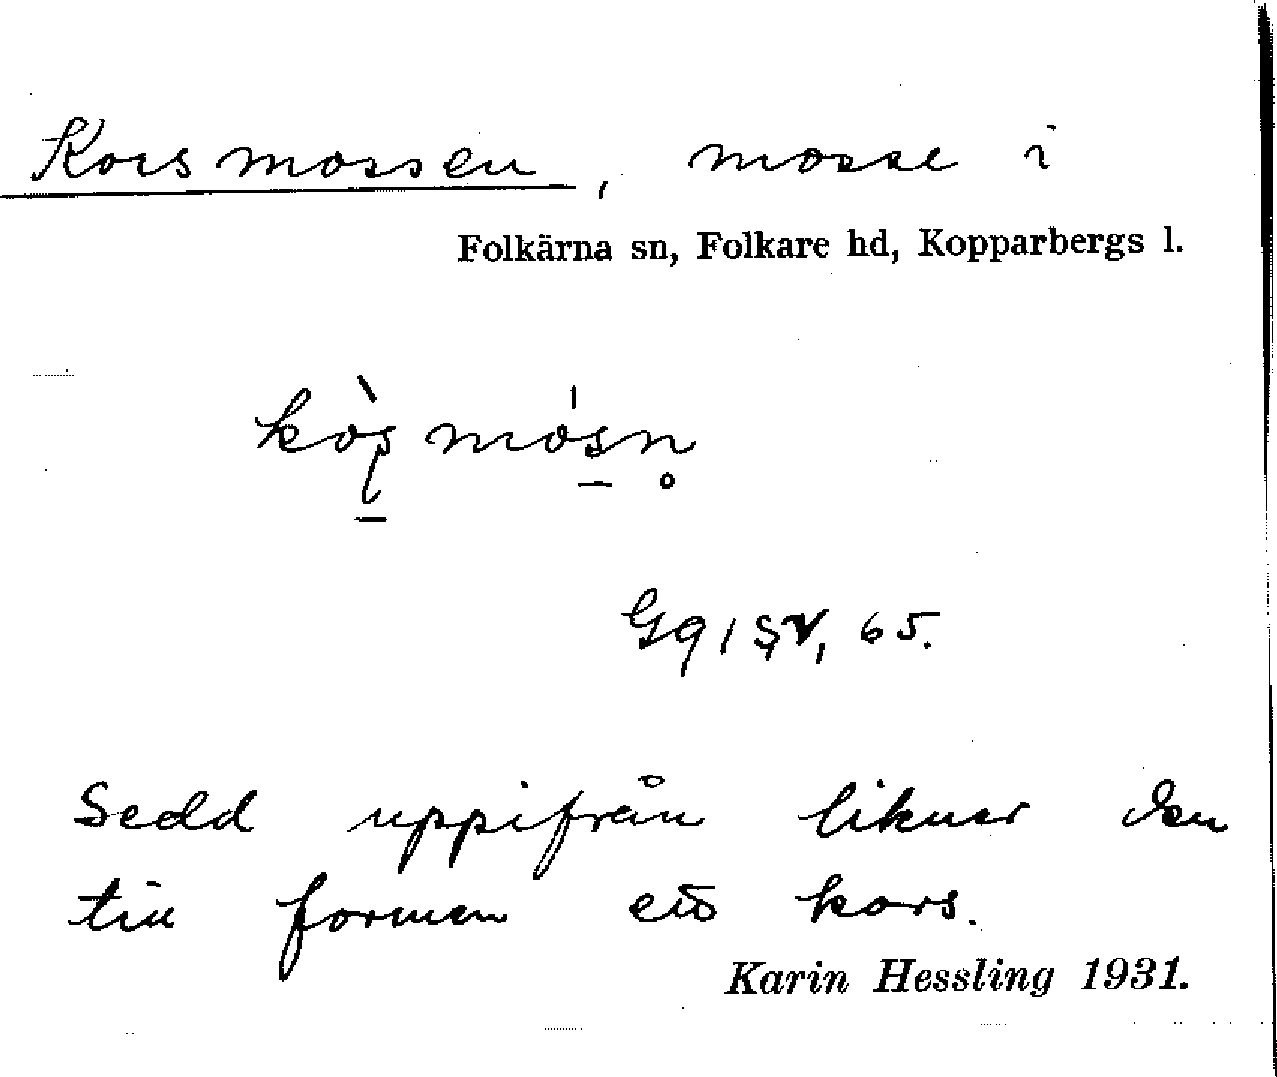 Korsmossen, mosse i
Folkärna sn, Folkare hd, Kopparbergs l.
Sedd uppifrån liknar den
till formen ett kors.
Karin Hessling 1931.